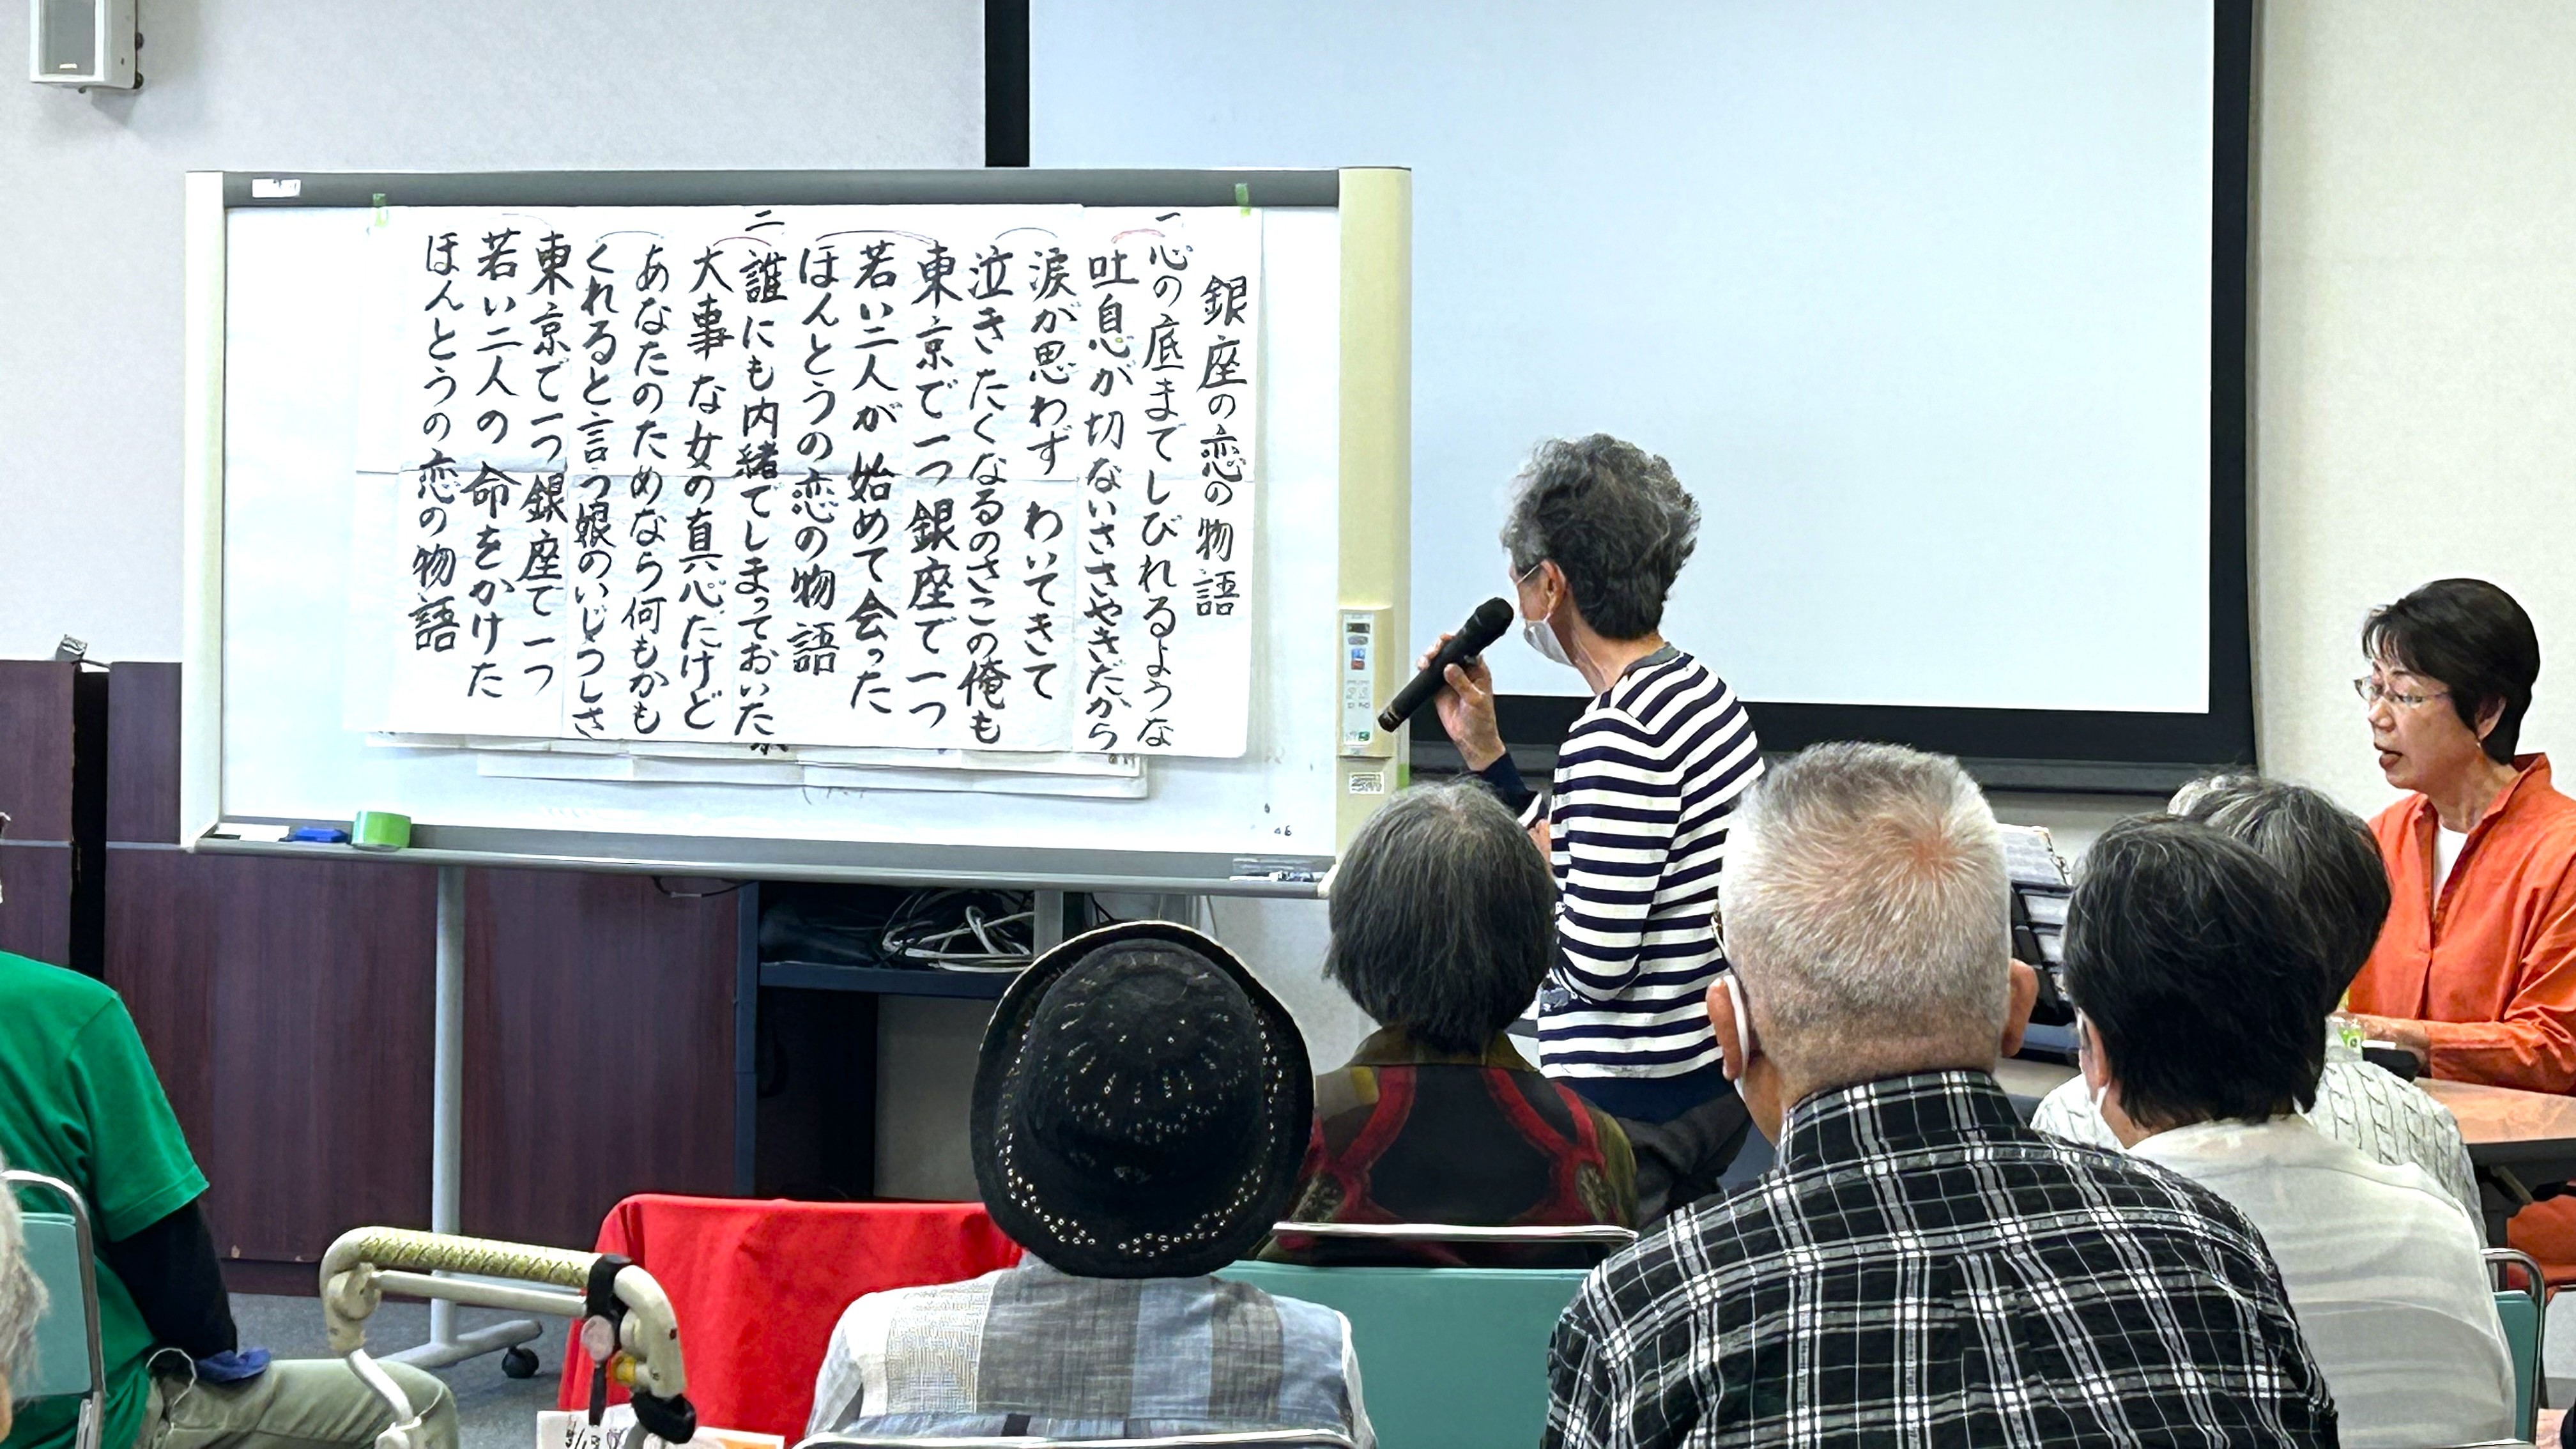 銀座の恋の物語
一 心の底までしびれるような
吐息が切ないささやきだから
涙が思わず わいてきて
泣きたくなるのさこの俺も
東京で一つ銀座で一つ
若い二人が始めて会った
ほんとうの恋の物語
二 誰にも内緒でしまっておいた
大事な女の真心だけど
あなたのためなら何もかも
くれると言う娘のいじらしさ
東京で一つ銀座で一つ
若い二人の命をかけた
ほんとうの恋の物語